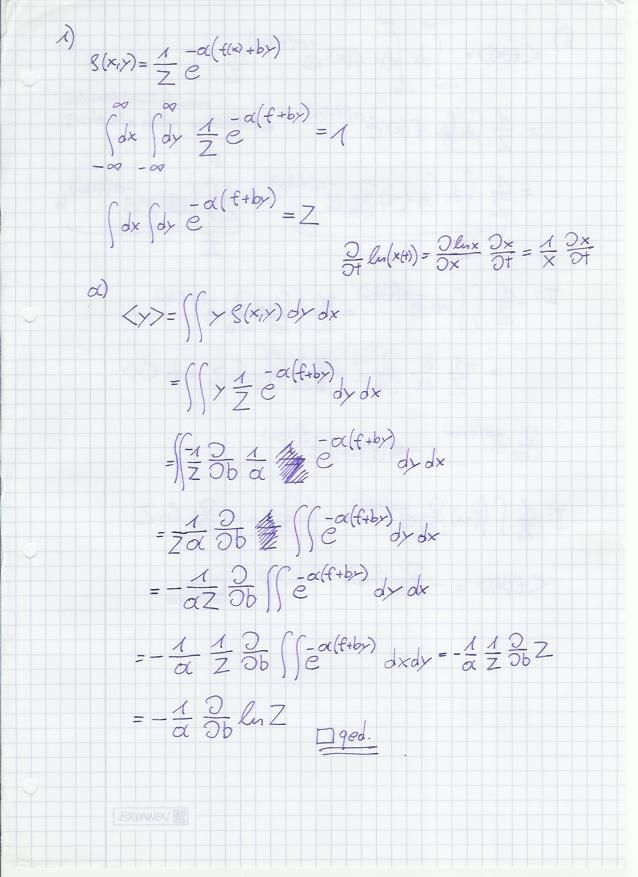 1)
ρ(x,y) = 1/Z e^{-α(f(x)+by)}
∫_{-∞}^{∞} dx ∫_{-∞}^{∞} dy 1/Z e^{-α(f+by)} = 1
∫dx ∫dy e^{-α(f+by)} = Z
∂/∂t ln(x(t)) = ∂lnx/∂x ∂x/∂t = 1/x ∂x/∂t
a)
<y> = ∫∫ y ρ(x,y) dy dx
= ∫∫ y 1/Z e^{-α(f+by)} dy dx
= ∫∫ -1/Z ∂/∂b 1/α e^{-α(f+by)} dy dx
= 1/Zα ∂/∂b ∫∫ e^{-α(f+by)} dy dx
= - 1/αZ ∂/∂b ∫∫ e^{-α(f+by)} dy dx
= - 1/α 1/Z ∂/∂b ∫∫ e^{-α(f+by)} dxdy = - 1/α 1/Z ∂/∂b Z
= - 1/α ∂/∂b ln Z
□ qed.
BRUNNEN